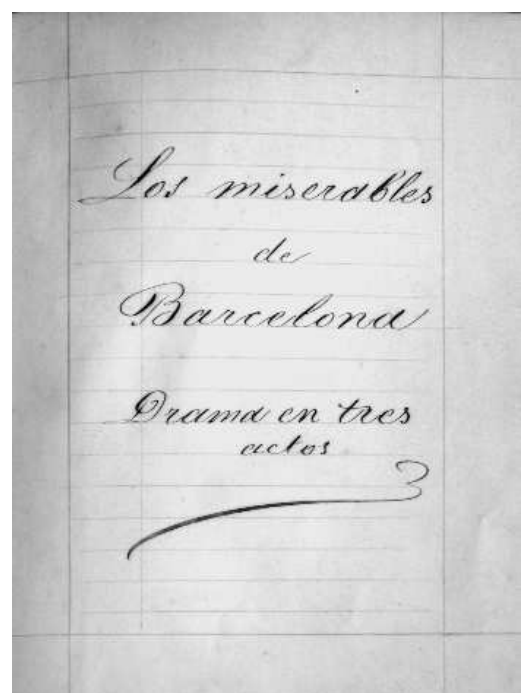 Los miserables
de
Barcelona
Drama en tres
actos